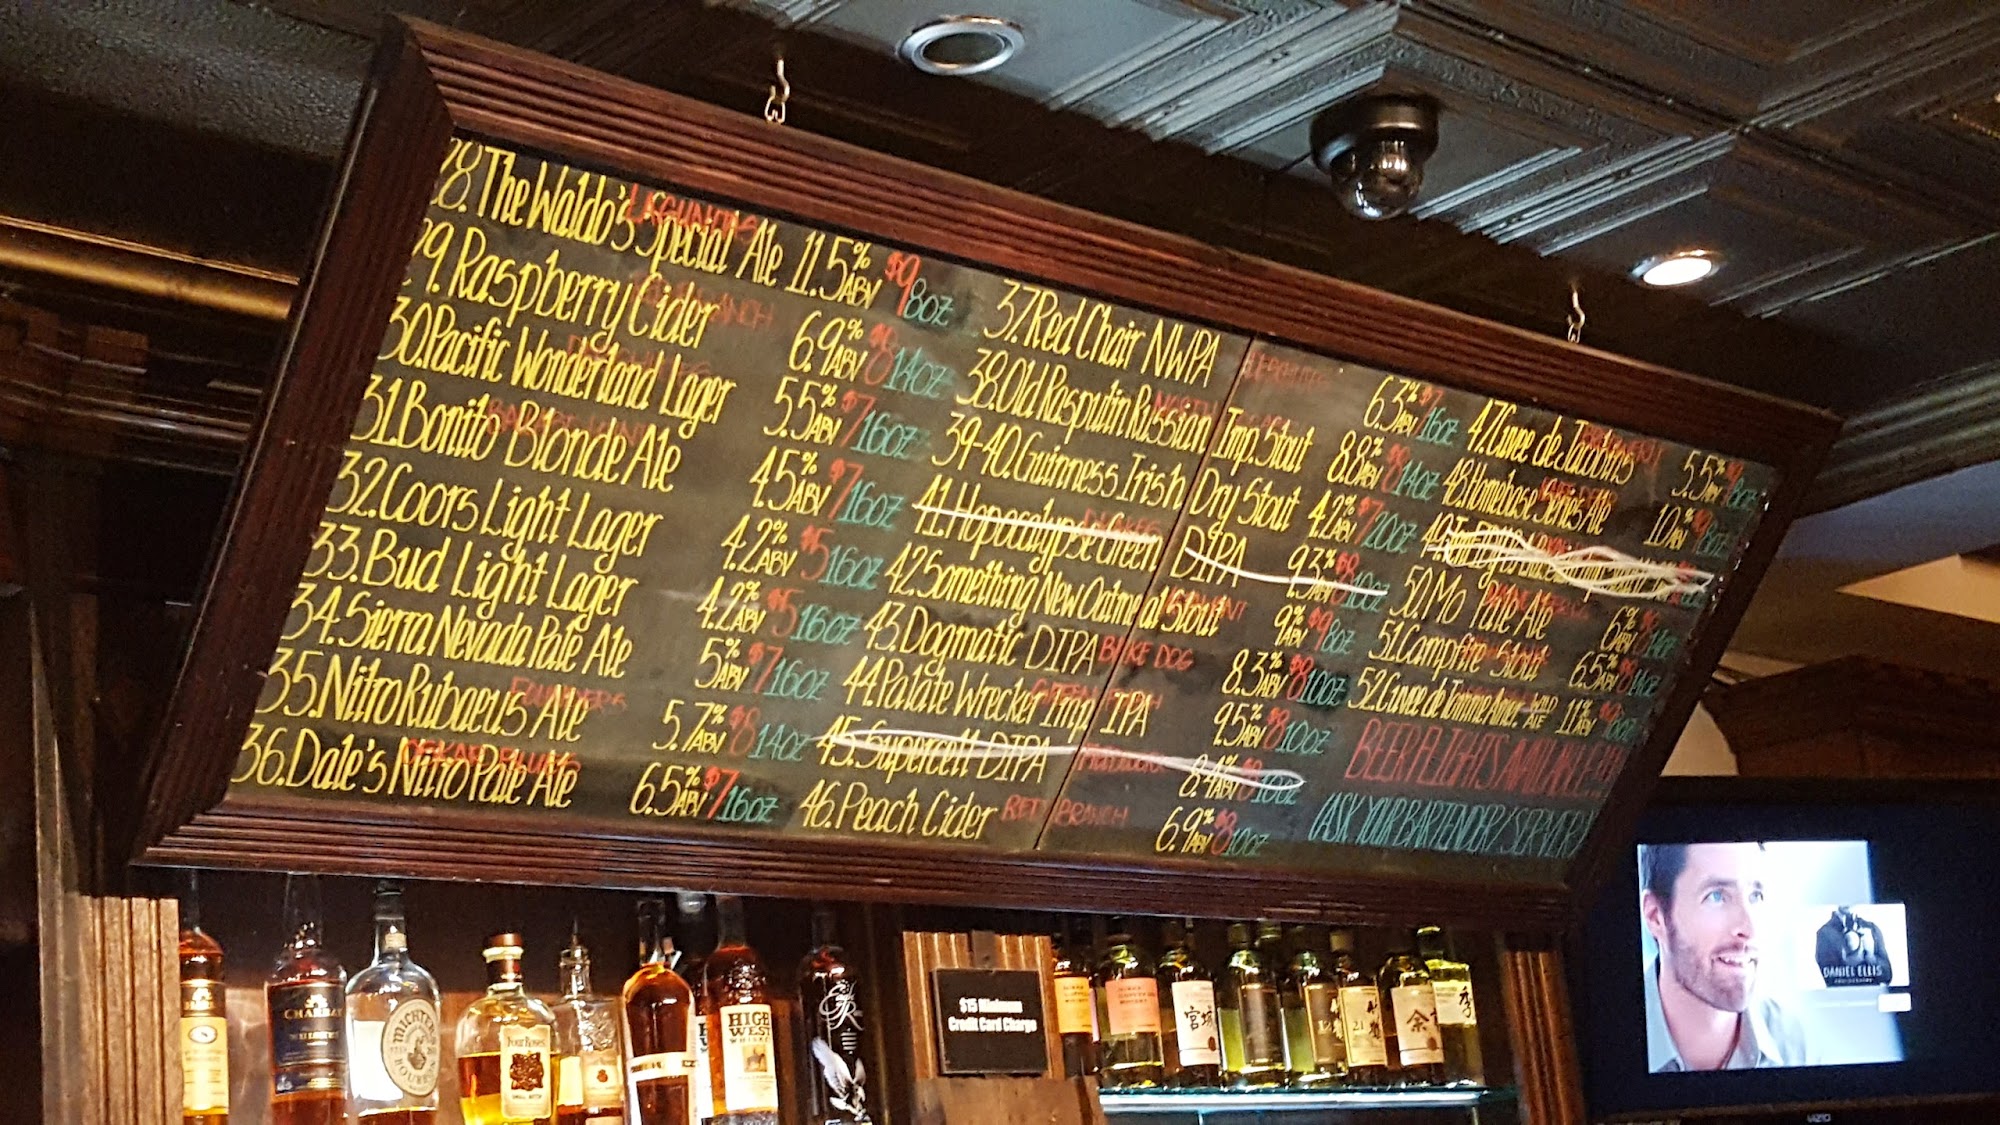 28. The Waldo's Special Ale LAGUNITAS 11.5% ABV $9 8oz
29. Raspberry Cider 6.9% ABV $8 14oz
30. Pacific Wonderland Lager 5.5% ABV $7 16oz
31. Bonito Blonde Ale 4.5% ABV $7 16oz
32. Coors Light Lager 4.2% ABV $5 16oz
33. Bud Light Lager 4.2% ABV $5 16oz
34. Sierra Nevada Pale Ale 5% ABV $7 16oz
35. Nitro Rubaeus Ale FOUNDERS 5.7% ABV $8 14oz
36. Dale's Nitro Pale Ale OSKAR BLUES 6.5% ABV $7 16oz
37. Red Chair NWPA DESCHUTES 6.3% ABV $7 16oz
38. Old Rasputin Russian Imp. Stout NORTH COAST 8.8% ABV $8 14oz
39-40. Guinness Irish Dry Stout 4.2% ABV $7 20oz
41. Hopocalypse Green DIPA DRAKES 9.3% ABV $8 10oz
42. Something New Oatmeal Stout 9% ABV $9 8oz
43. Dogmatic DIPA BIKE DOG 8.3% ABV $8 10oz
44. Palate Wrecker Imp. IPA GREEN FLASH 9.5% ABV $8 10oz
45. Supercell DIPA 8.4% ABV $8 10oz
46. Peach Cider REED BRANCH 6.9% ABV $8 10oz
47. Cuvee de Jacobins 5.5% ABV 8oz
48. Homebase Series Ale 10% ABV 8oz
49.
50. Mo Pale Ale 6% ABV 14oz
51. Campfire Stout 6.5% ABV $8 14oz
52. Cuvee de Tomme Amer. WILD ALE 11% ABV 8oz
BEER FLIGHTS AVAILABLE!!
(ASK YOUR BARTENDER/SERVER)
$15 Minimum
Credit Card Charge
CHARBAY
MICHTER'S
Four Roses
SMALL BATCH
HIGH
WEST
WHISKEY
宮城
12
竹鶴
21
余市
秀
DANIEL ELLIS
PHOTOGRAPHY
VIZIO